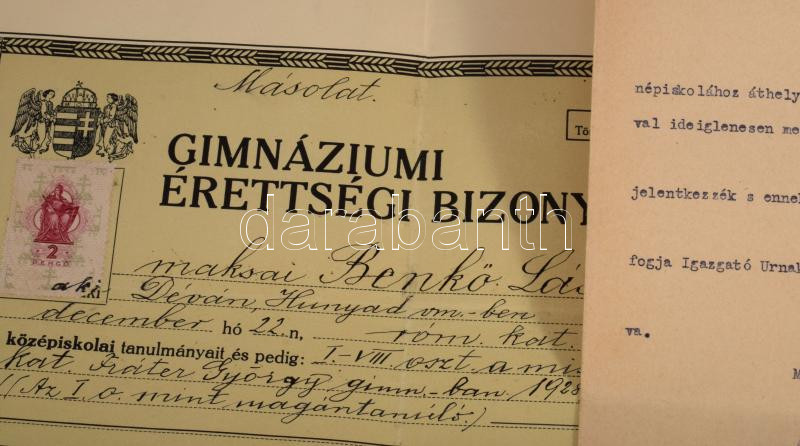 Másolat.
Tö
GIMNÁZIUMI
ÉRETTSÉGI BIZONY
2
PENGŐ
maksai Benkő Lás
aki
Déván, Hunyad vm.-ben
december hó 22.n, róm. kat.
középiskolai tanulmányait és pedig: I-VIII oszt. a mis
kat. Fráter György gimn.-ban 1928
(Az I. o. mint magántanuló)
népiskolához áthely
val ideiglenesen me
jelentkezzék s ennek
fogja Igazgató Urnak
va.
M
darabanth